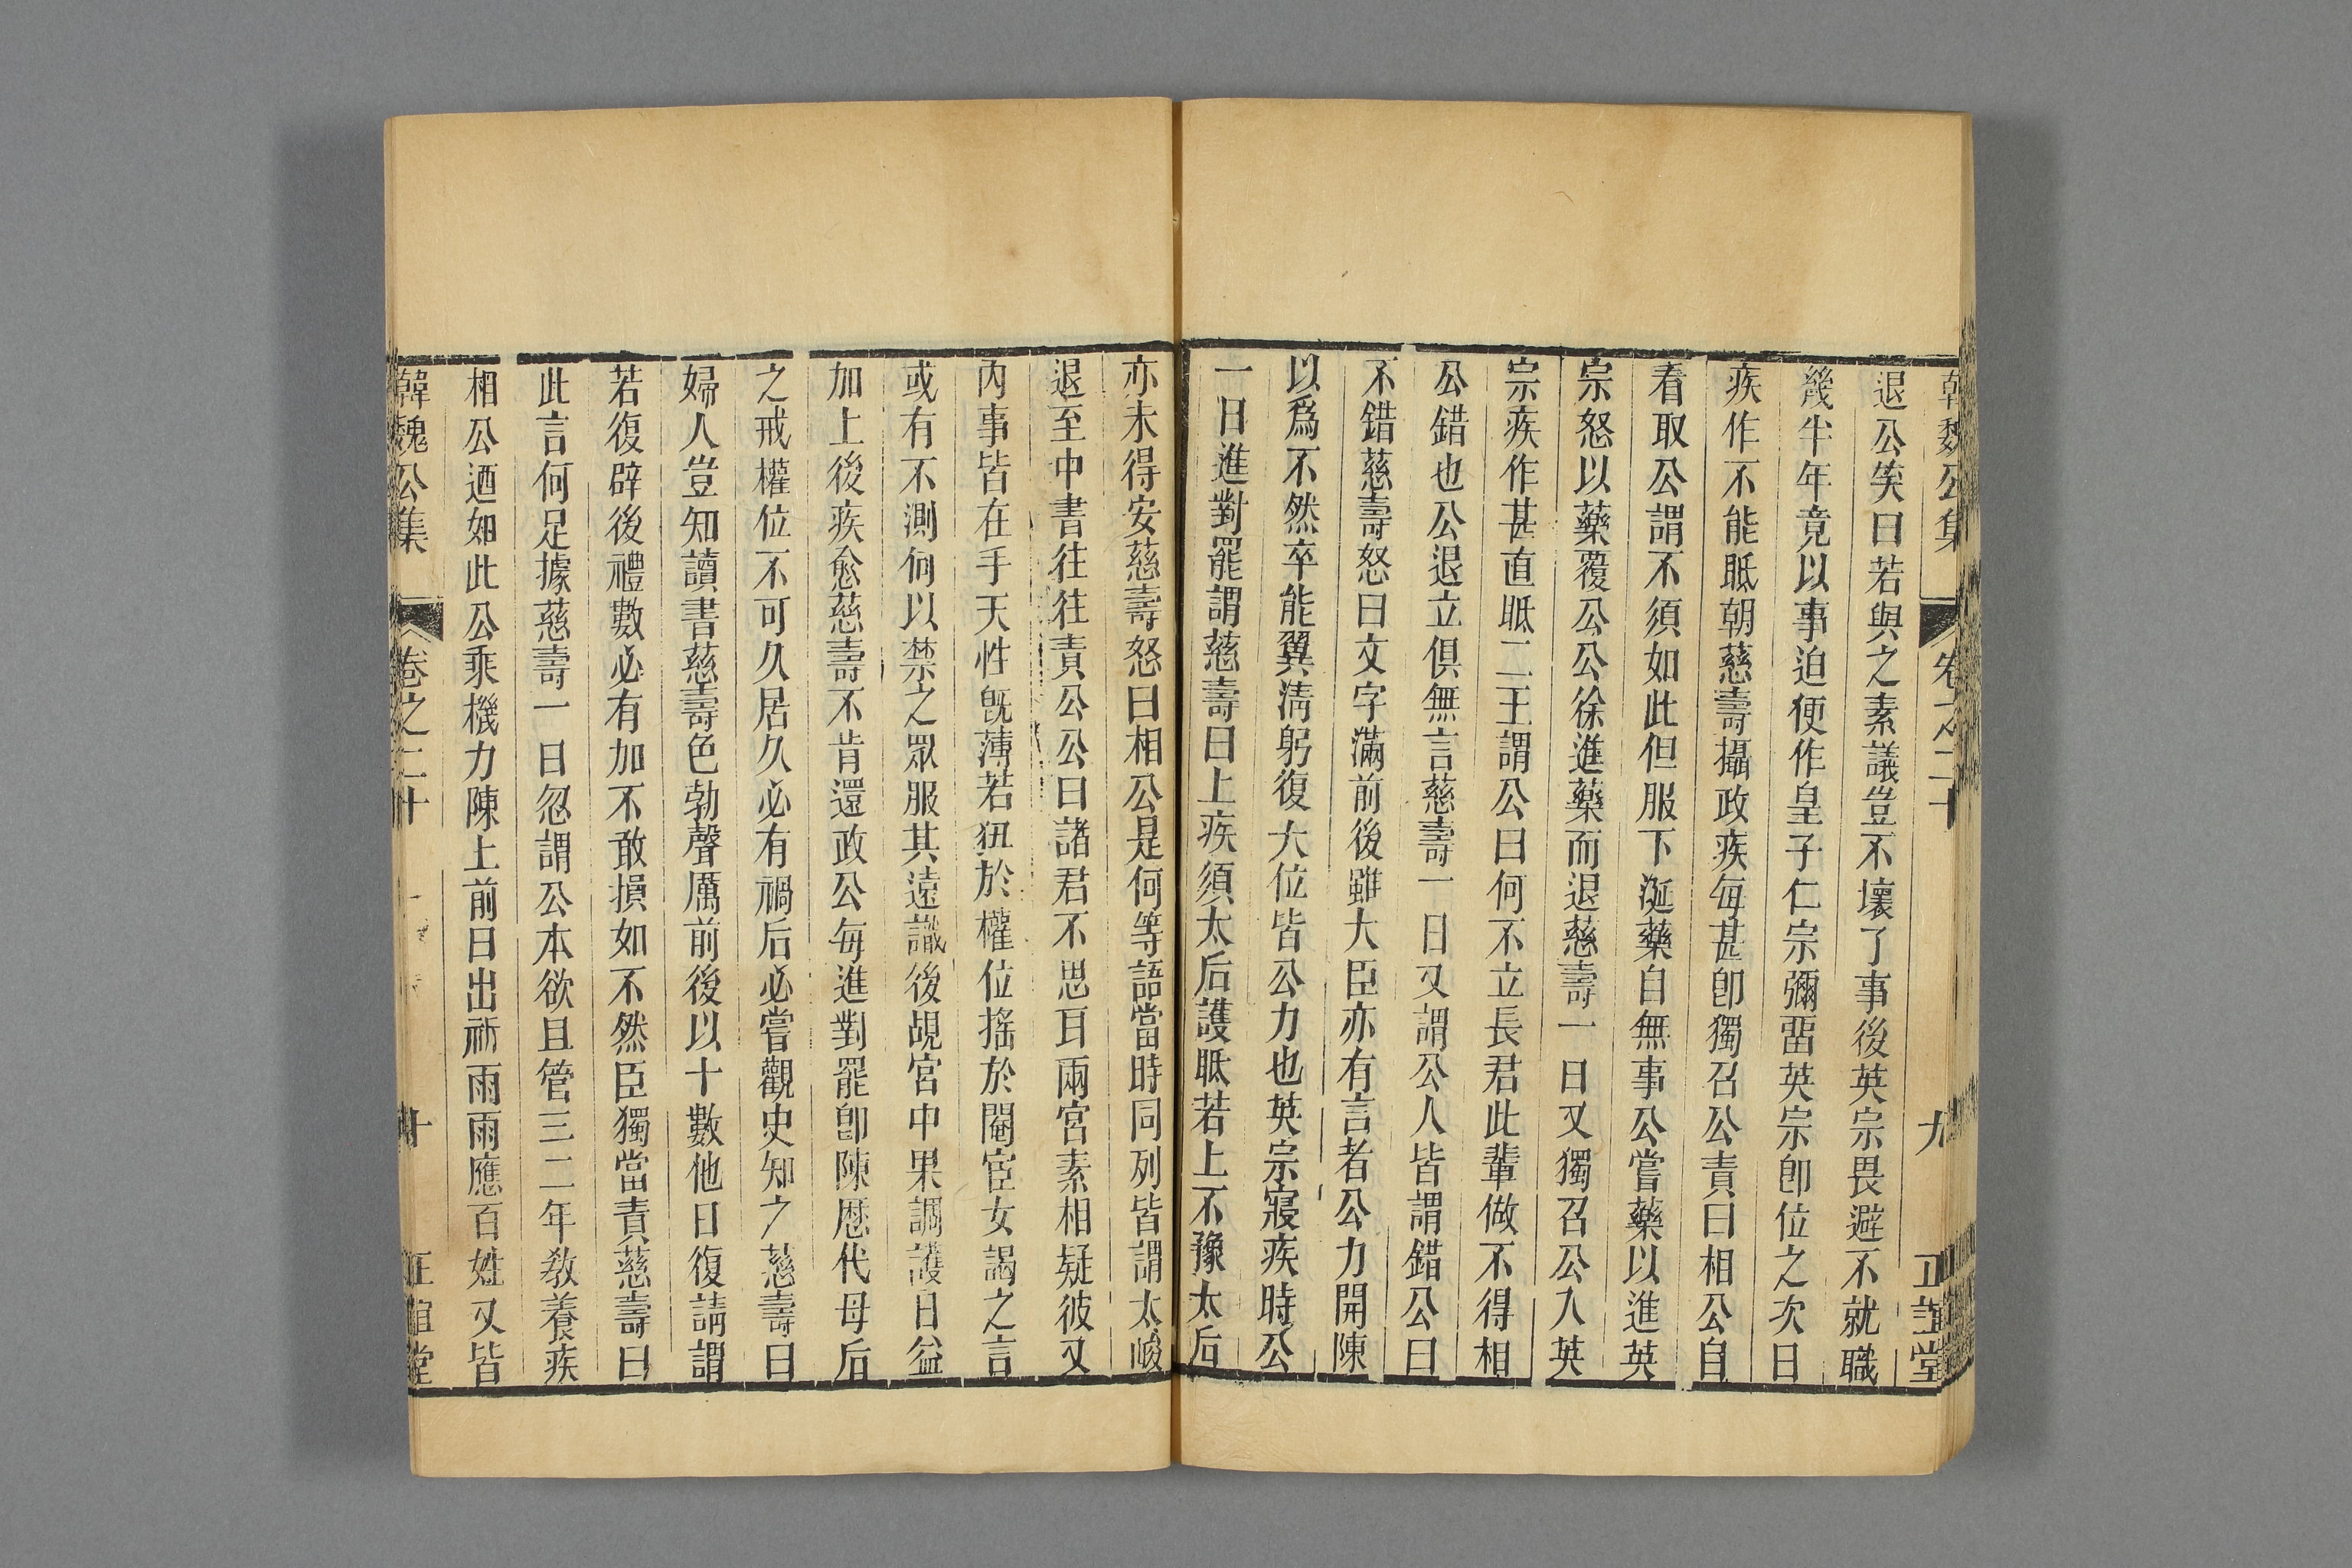 韓魏公集 卷之二十 九 正誼堂
退公笑曰若與之素議豈不壞了事後英宗畏避不就職
幾半年竟以事迫便作皇子仁宗彌畱英宗卽位之次日
疾作不能眡朝慈壽攝政疾每甚卽獨召公責曰相公自
看取公謂不須如此但服下涎藥自無事公嘗藥以進英
宗怒以藥覆公公徐進藥而退慈壽一日又獨召公入英
宗疾作甚直眡二王謂公曰何不立長君此輩做不得相
公錯也公退立俱無言慈壽一日又謂公人皆謂錯公曰
不錯慈壽怒曰文字滿前後雖大臣亦有言者公力開陳
以爲不然卒能翼清躬復大位皆公力也英宗寢疾時公
一日進對罷謂慈壽曰上疾須太后護眡若上不豫太后
亦未得安慈壽怒曰相公是何等語當時同列皆謂太峻
退至中書往往責公公曰諸君不思耳兩宮素相疑彼又
內事皆在手天性旣薄若狃於權位搖於閹宦女謁之言
或有不測何以禁之眾服其遠識後覘宮中果調護日益
加上後疾愈慈壽不肯還政公每進對罷卽陳歷代母后
之戒權位不可久居久必有禍后必嘗觀史知之慈壽曰
婦人豈知讀書慈壽色勃聲厲前後以十數他日復請謂
若復辟後禮數必有加不敢損如不然臣獨當責慈壽曰
此言何足據慈壽一日忽謂公本欲且管三二年敎養疾
相公迺如此公乘機力陳上前日出祈雨雨應百姓又皆
韓魏公集 卷之二十 十 正誼堂